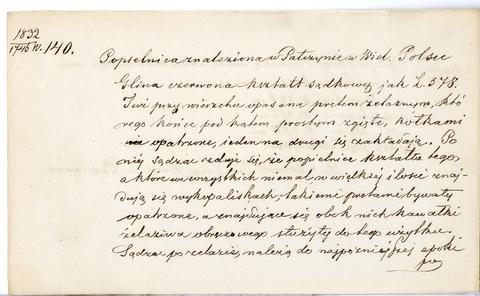 1832
1745 W. 140.
Popielnica znaleziona w Patczynie w Wiel. Polsce
Glina czerwona kształt sądkowy jak L. 578.
Tuż przy wierzchu opasana prętem żelaznym, któ
rego końce pod kątem prostym zgięte, kółkami
opatrzone, ieden na drugi się zakładają. Po
niéj sądząc zdaje się, że popielnice kształtu tego,
a które we wszystkich niemal w większej ilości znaj-
dują się wykopaliskach, takiemi prętami bywały
opatrzone, a znajdujące się obok nich kawałki
żelaziwa obręczowego służyły do tego użytku.
Sądząc po żelazie, należą do najpóźniejszej epoki